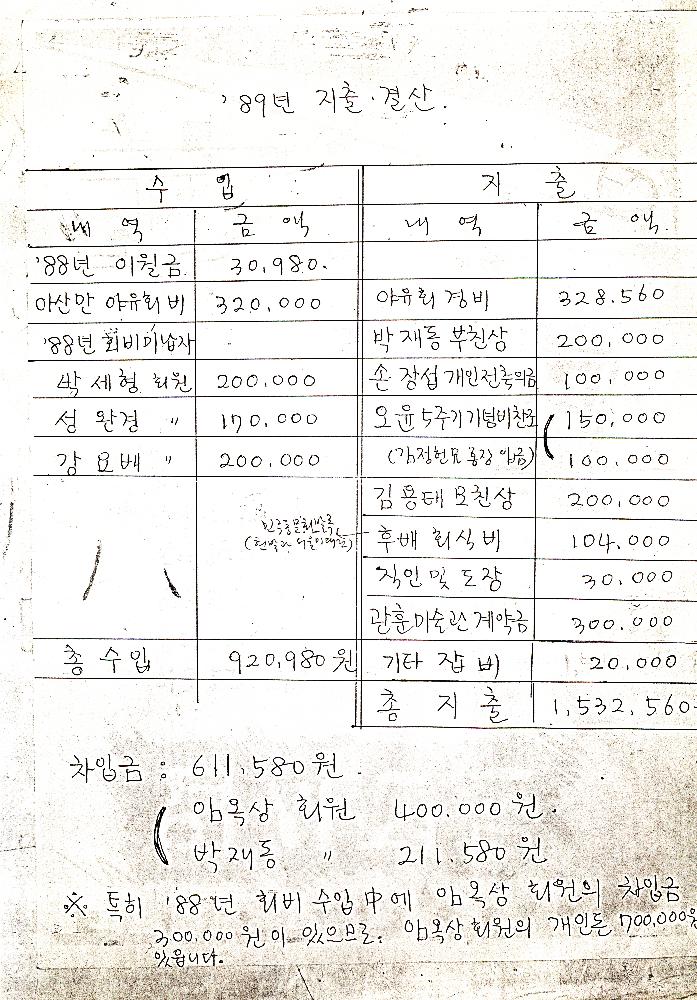 '89년 지출·결산.
수 입 지 출
내 역 금 액 내 역 금 액
'88년 이월금 30,980.
아산만 야유회비 320,000 야유회 경비 328.560
'88년 회비미납자 박재동 부친상 200,000
박세형 회원 200,000 손장섭 개인전축의금 100,000
성완경 〃 170,000 오윤 5주기기념비찬조 150,000
강요배 〃 200,000 (김정헌 통장 입금) 100,000
김용태 모친상 200,000
후배 회식비 104,000
직인 및 도장 30,000
관훈미술관 계약금 300,000
총 수입 920,980원 기타 잡비 20,000
총 지출 1,532,560
차입금 : 611,580원.
임옥상 회원 400.000원.
박재동 〃 211.580원
※ 특히 '88년 회비 수입中에 임옥상 회원의 차입금
300.000원이 있으므로, 임옥상 회원의 개인돈 700,000원
있읍니다.